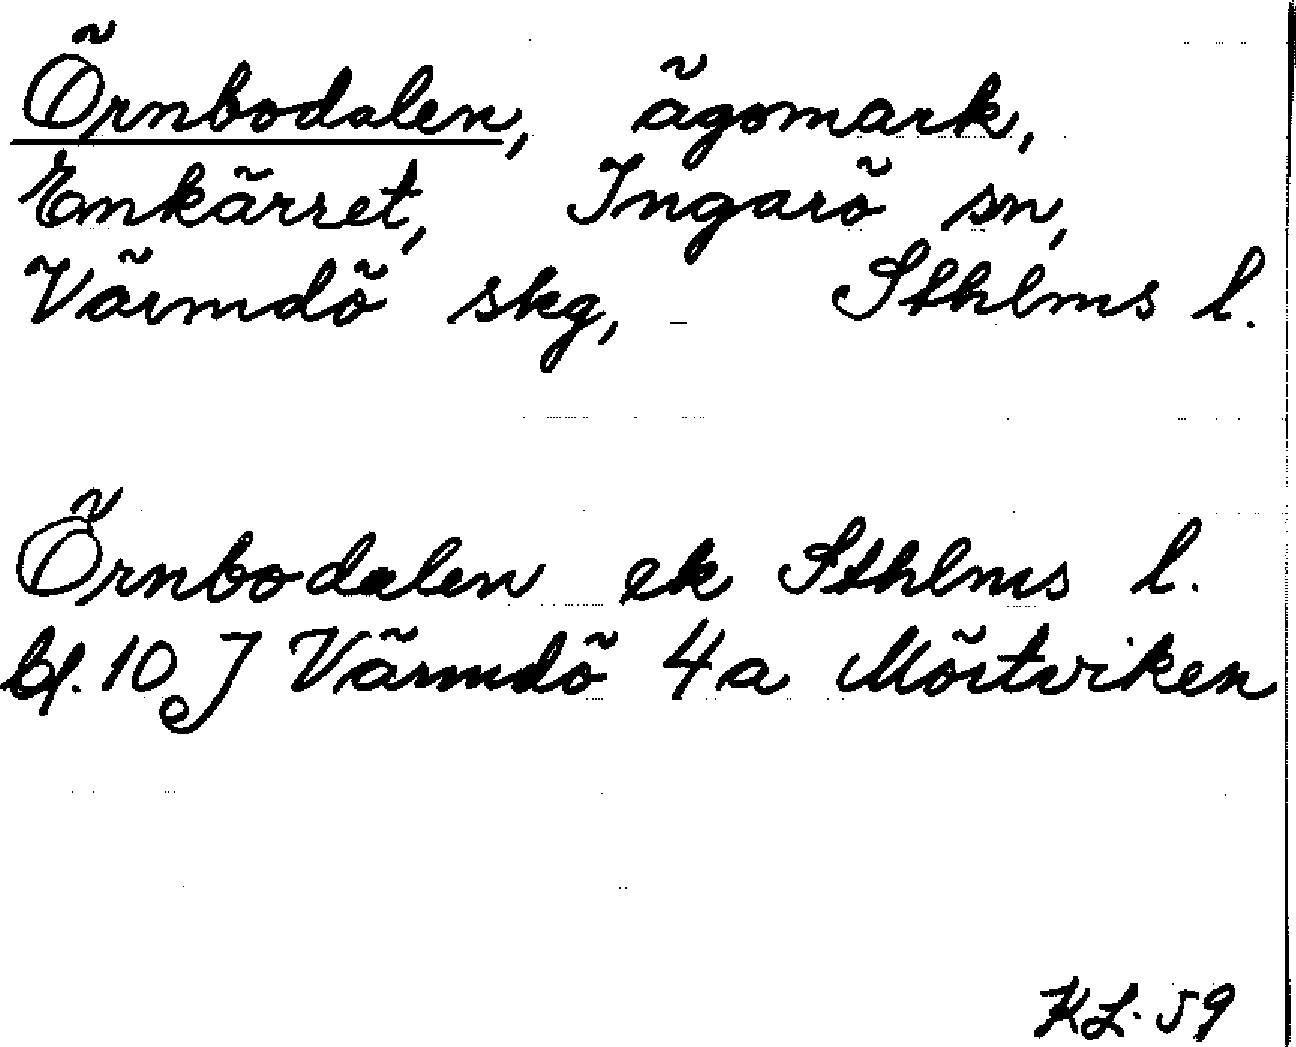 Örnbodalen, ägomark,
Enkärret, Ingarö sn,
Värmdö skg, Sthlms l.
Örnbodalen ek Sthlms l.
bl. 10 J Värmdö 4a Mörtviken
KL. 59